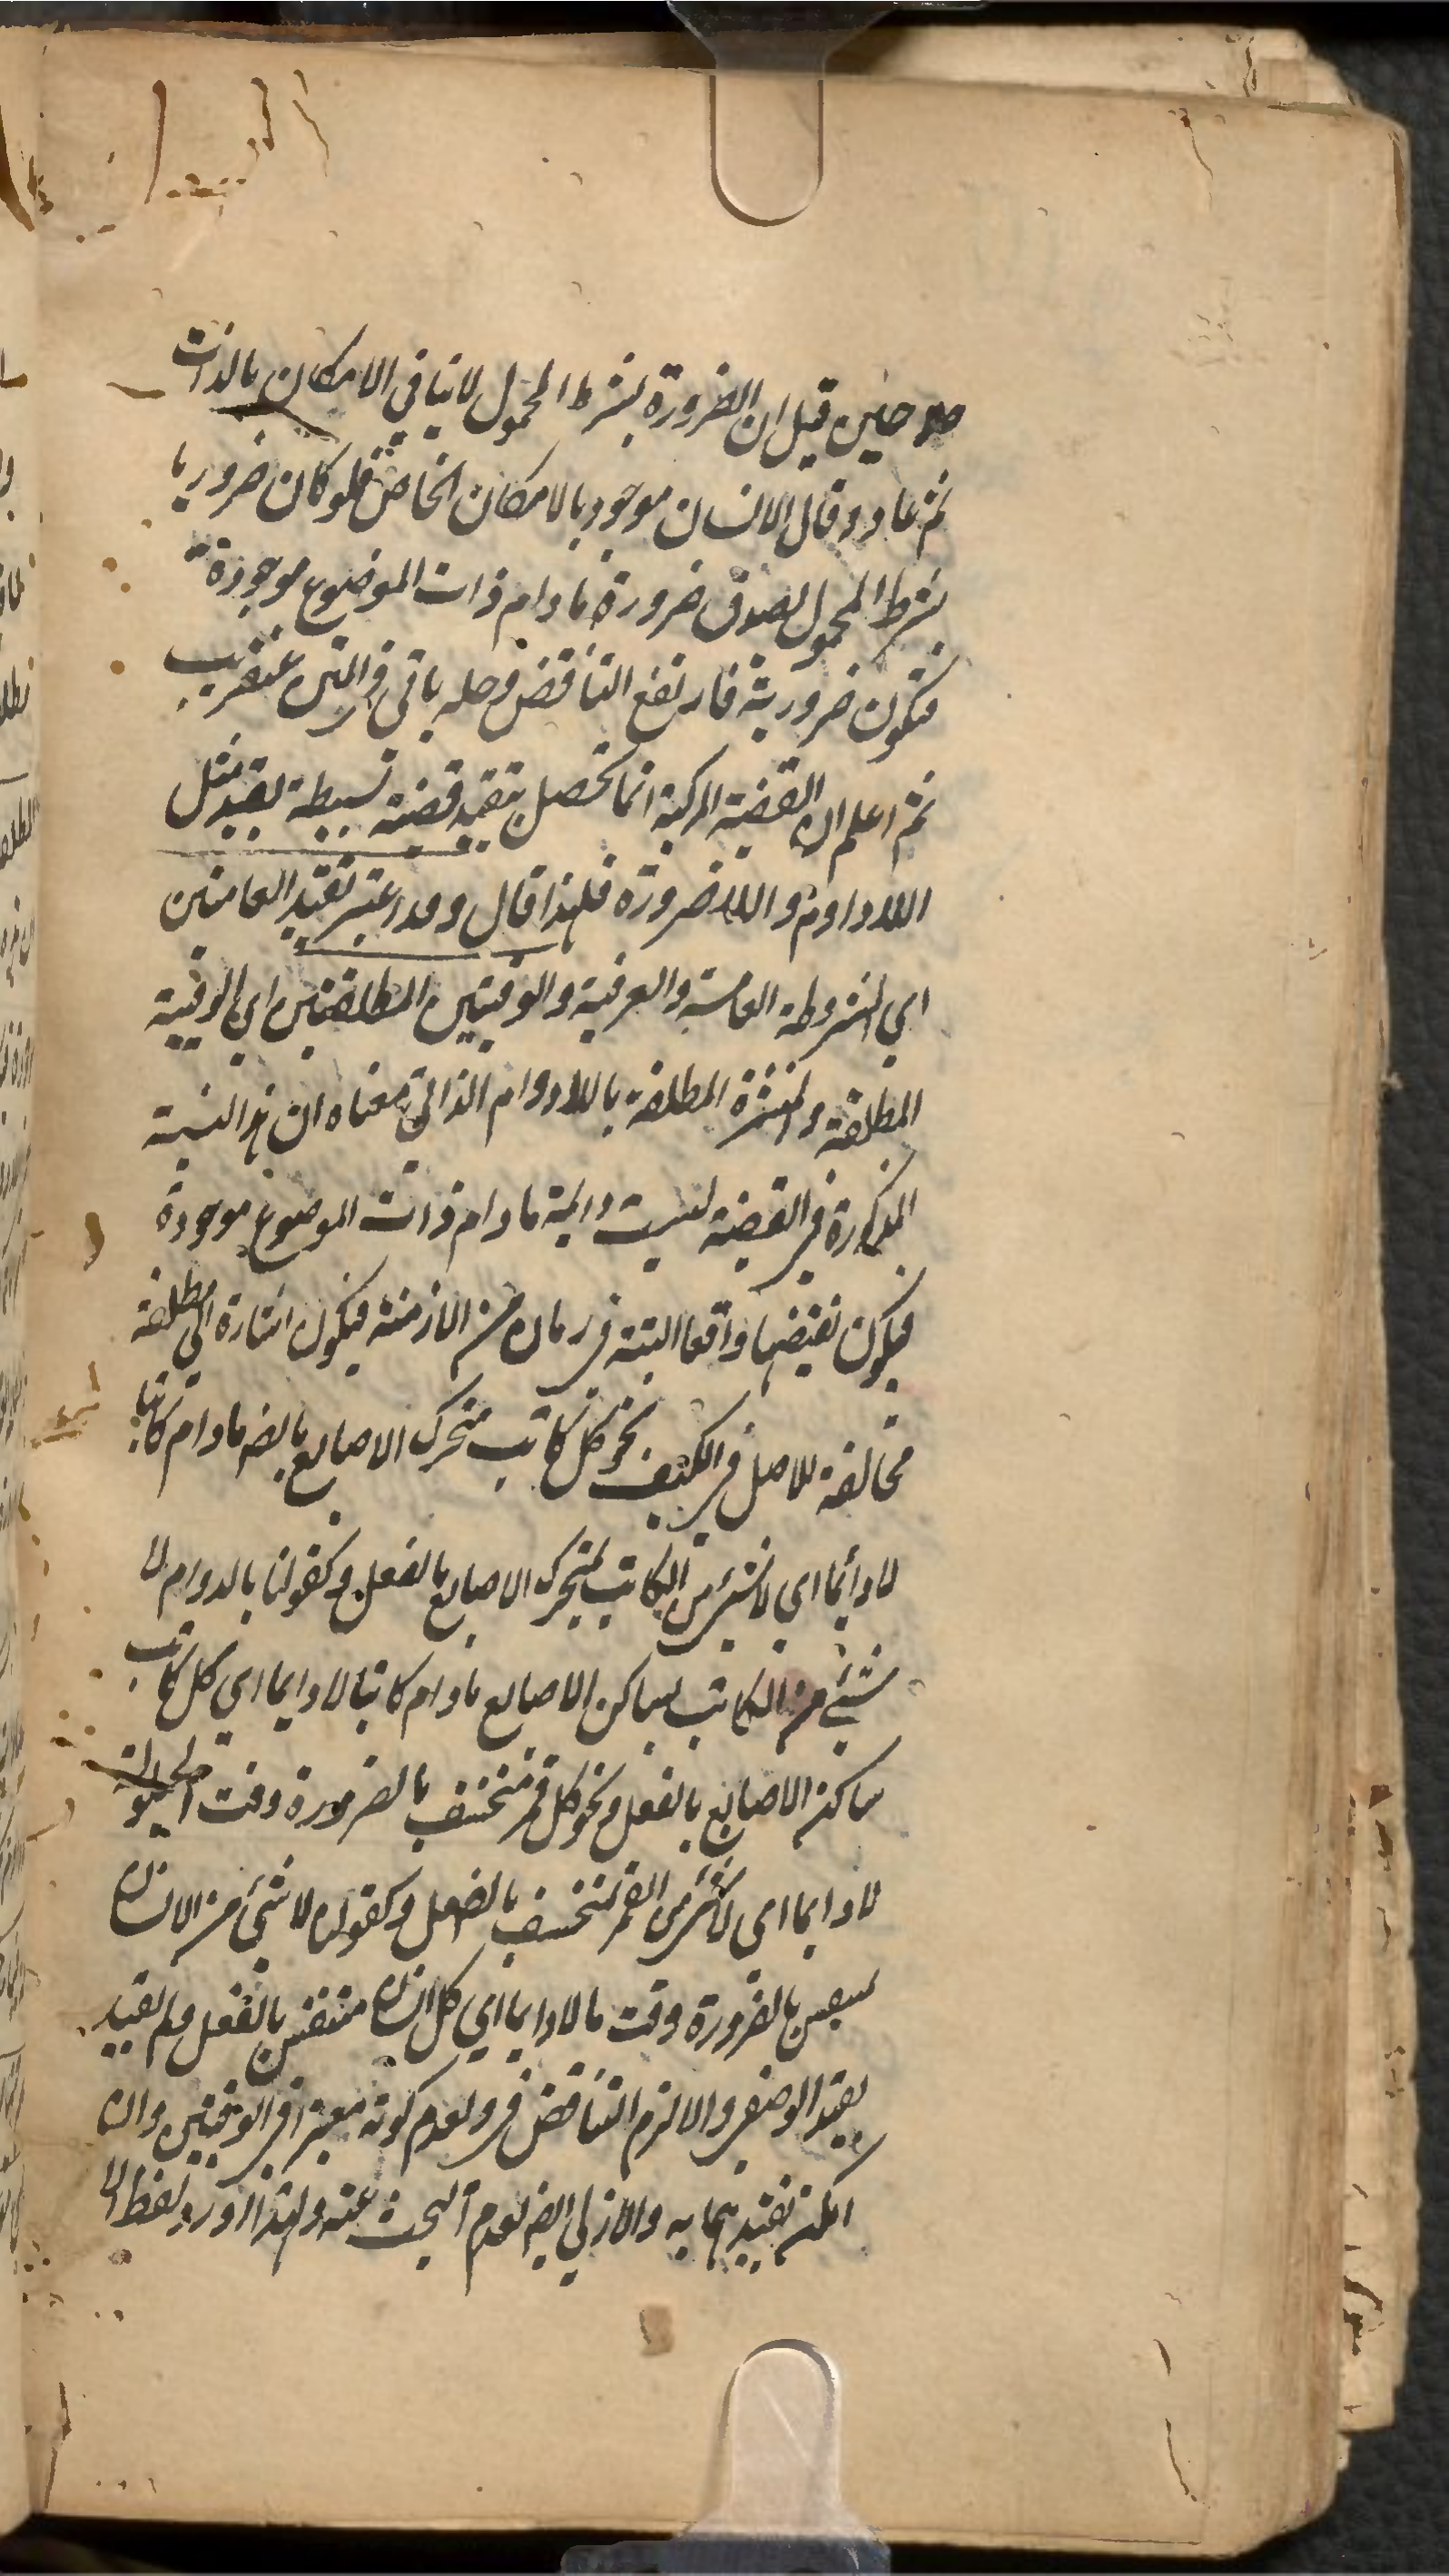 حين قيل ان الضرورة بشرط المحمول لا تنافي الامكان بالذات
ثم عاد و قال الانسان موجود بالامكان الخاص فلو كان ضروريا
بشرط المحمول لصدق ضرورة ما دام ذات الموضوع موجودة
فتكون ضرورية فارتفع التناقض وحله ياتي في المتن عنقريب
ثم اعلم ان القضية المركبة انما تحصل بتقييد قضية بسيطة بقيد مثل
اللادوام و اللاضرورة فلهذا قال وقد اعتبر تقييد العامتين
اي المشروطة العامة والعرفية والوقتيتين المطلقتين اي الوقتية
المطلقة والمنتشرة المطلقة باللادوام الذاتي معناه ان هذه النسبة
المذكورة في القضية ليست دايمة ما دام ذات الموضوع موجودة
فيكون نقيضها واقعا البتة في زمان من الازمنة فيكون اشارة الى مطلقة
مخالفة للاصل في الكيف نحو كل كاتب متحرك الاصابع بالضـ ما دام كاتبا
لا دائما اي لا شيء من الكاتب بمتحرك الاصابع بالفعل وكقولنا بالدوام لا
شئ من الكاتب بساكن الاصابع ما دام كاتبا لا دايما اي كل كاتب
ساكن الاصابع بالفعل و نحو كل قمر منخسف بالضرورة وقت الحيلولة
لا دايما اي لا شيء من القمر بمنخسف بالفعل وكقوله لا شئ من الانسان
بالضرورة وقت ما لا دايما اي كل انسان متنفس بالفعل ولم يقيد
بقيد الوصفي والا لزم التناقض في ولعدم كونه معتبرا في الوقتيتين وان
امكن تقييدهما به والازلي ايضـ لعدم البحث عنه ولهذا اورد لفظ الا